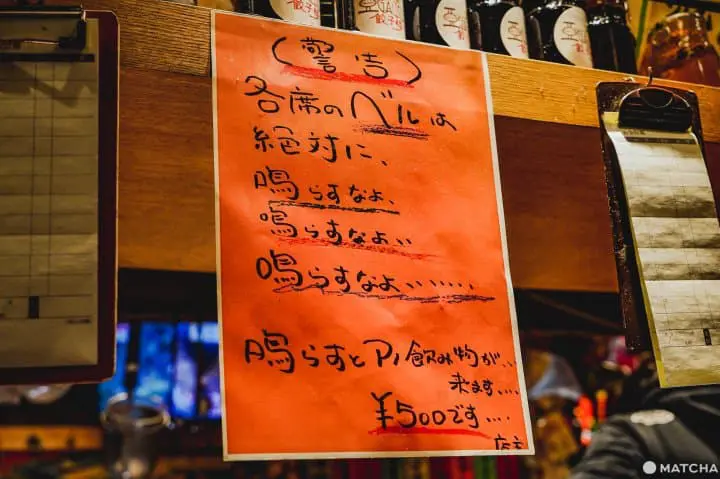 餃子
(警告)
各席のベルは
絶対に、
鳴らすなよ、
鳴らすなよ、、
鳴らすなよ、、、、、、
鳴らすとアノ飲み物が、、
来ます、、、、
¥500です、、、、
店主
MATCHA